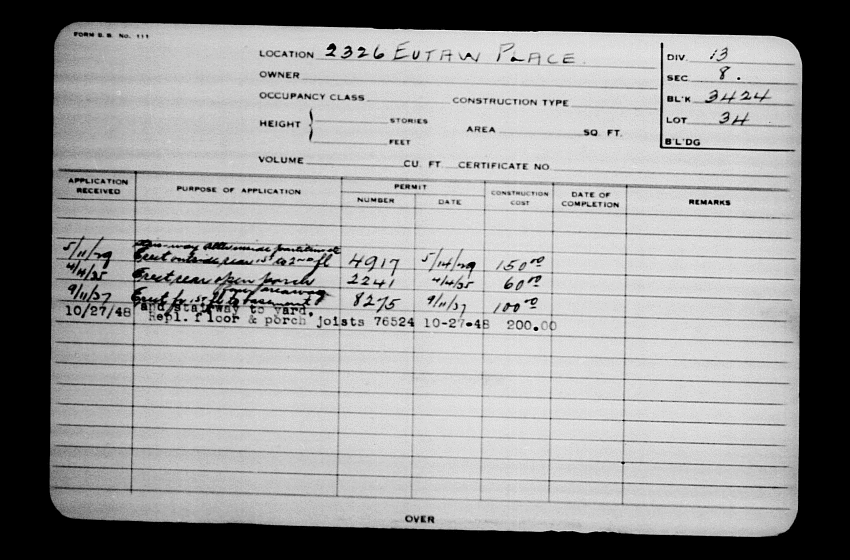 FORM B. B. No. 111
LOCATION 2326 EUTAW PLACE.
DIV. 13
OWNER
SEC 8.
OCCUPANCY CLASS CONSTRUCTION TYPE
BL'K 3424
HEIGHT { STORIES
FEET
AREA SQ. FT.
LOT 34
B'L'DG
VOLUME CU. FT. CERTIFICATE NO
APPLICATION RECEIVED PURPOSE OF APPLICATION PERMIT NUMBER DATE CONSTRUCTION COST DATE OF COMPLETION REMARKS
partitions
5/11/29 Erect outside rear 1st to 2nd fl 4917 5/14/29 150.00
4/14/35 Erect rear open porch 2241 4/14/35 60.00
areaway
9/11/37 Erect 1st fl to basement 8275 9/11/37 100.00
10/27/48 and stairway to yard.
Repl. floor & porch joists 76524 10-27-48 200.00
OVER